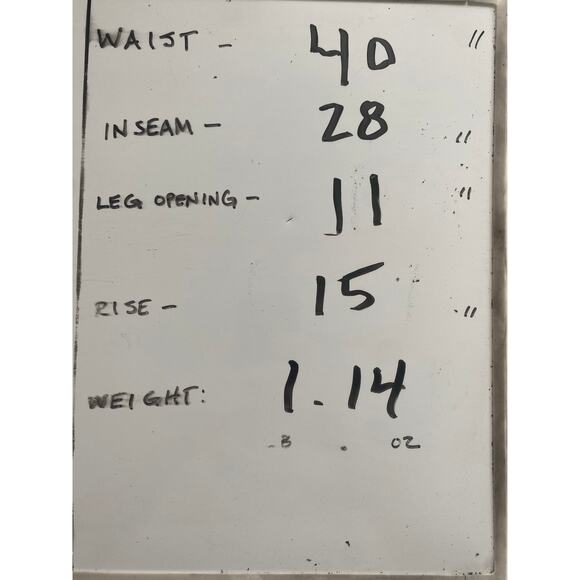 WAIST - 40 "
INSEAM - 28 "
LEG OPENING - 11 "
RISE - 15 "
WEIGHT: 1.14
. OZ